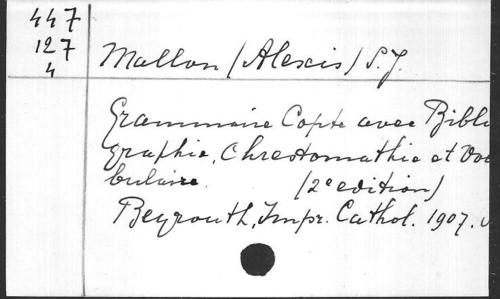 447
127
4
Mallon (Alexis) S.J.
Grammaire Copte avec Bibli
graphie, Chrestomathie et Voc
bulaire. (2e edition)
Beyrouth, Impr. Cathol. 1907.